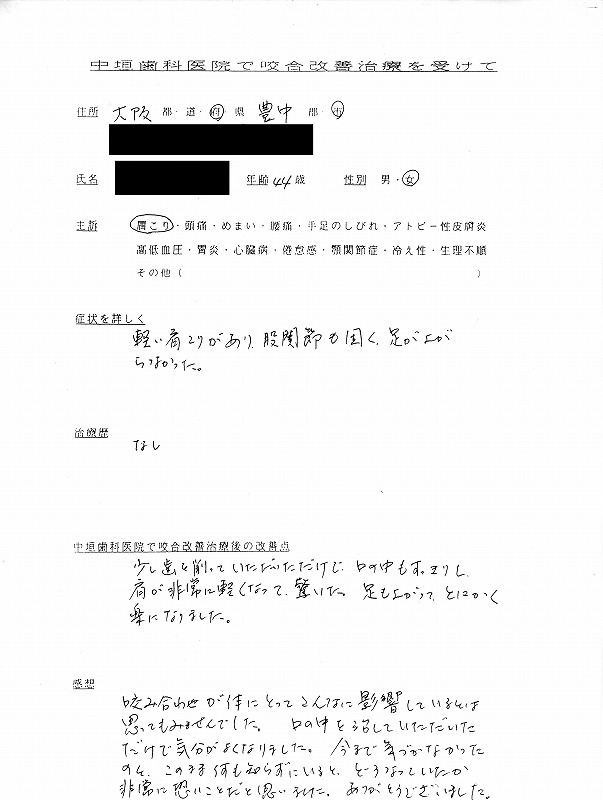 中垣歯科医院で咬合改善治療を受けて
住所 大阪 都・道・府・県 豊中 郡・市
氏名 年齢 44 歳 性別 男・女
主訴 肩こり・頭痛・めまい・腰痛・手足のしびれ・アトピー性皮膚炎
高低血圧・胃炎・心臓病・倦怠感・顎関節症・冷え性・生理不順
その他( )
症状を詳しく
軽い肩こりがあり、股関節も固く、足が上が
らなかった。
治療歴
なし
中垣歯科医院で咬合改善治療後の改善点
少し歯を削っていただいただけで、口の中もすっきりし、
肩が非常に軽くなって、驚いた。足も上がって、とにかく
楽になりました。
感想
咬み合わせが体にとってこんなに影響しているとは
思ってもみませんでした。口の中を治していただいた
だけで気分がよくなりました。今まで気づかなかった
ので、このまま何も知らずにいると、どうなっていたか
非常に恐いことだと思いました。ありがとうございました。